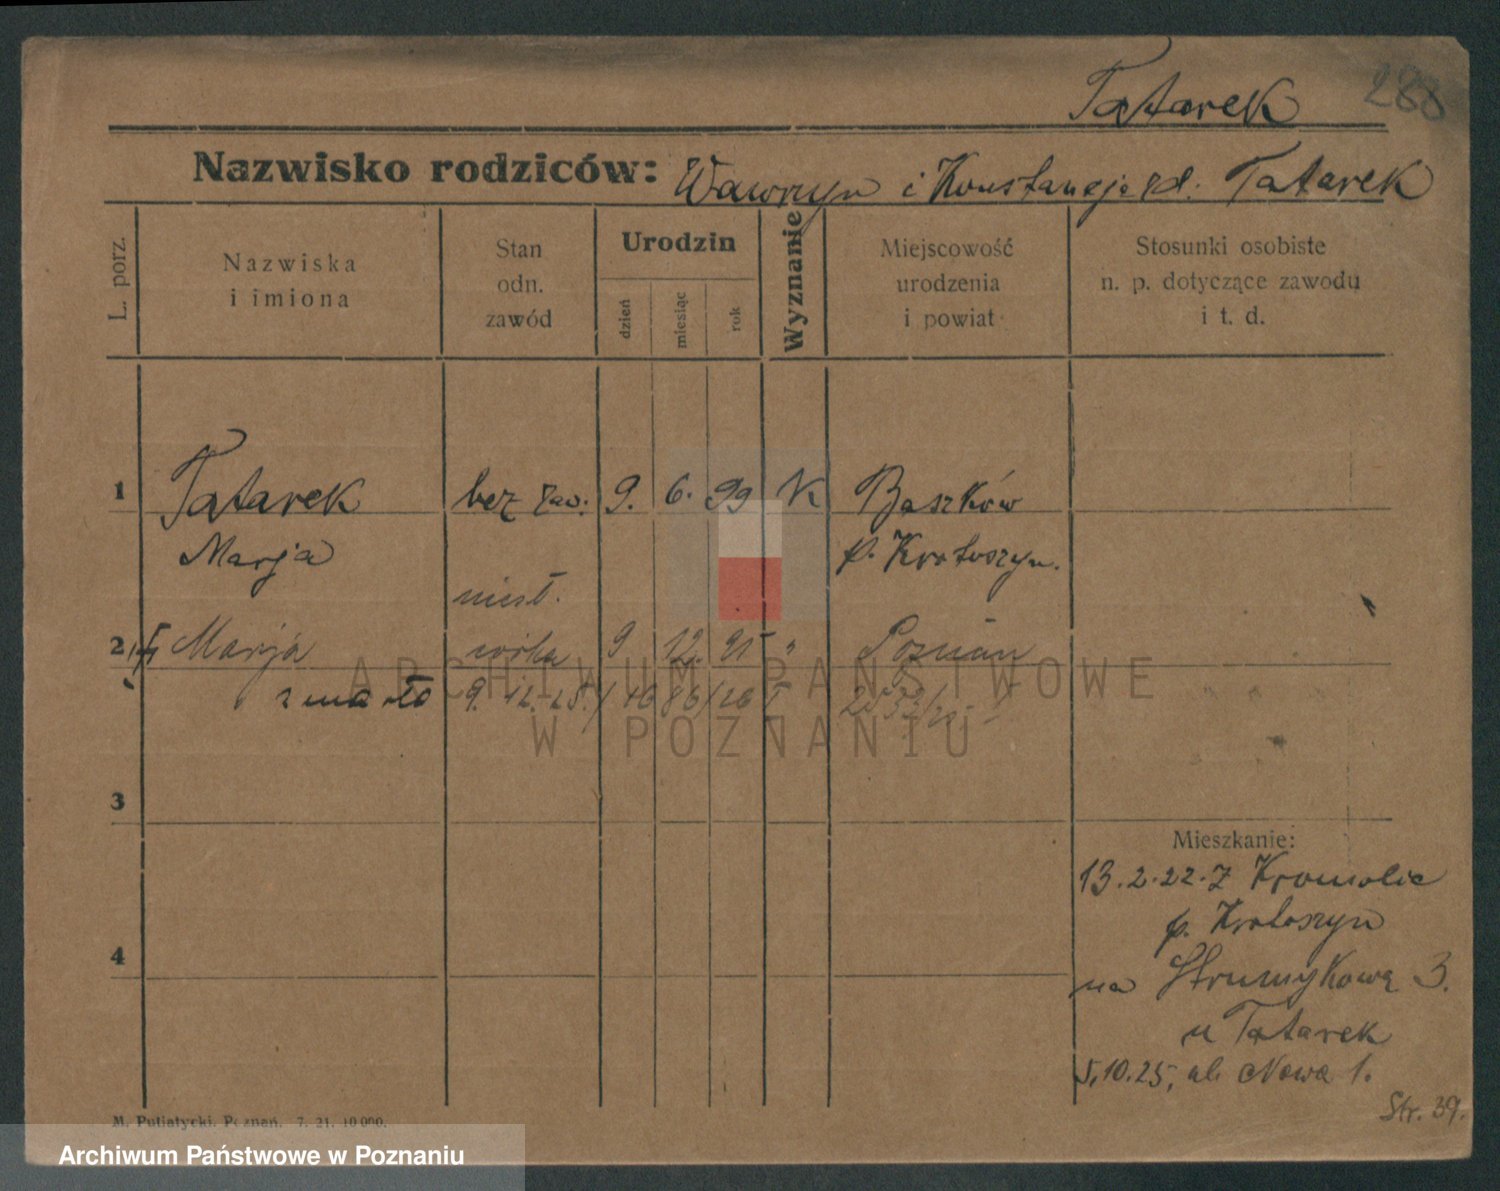 Tatarek 288
Nazwisko rodziców: Wawrzyn i Konstancja rd. Tatarek
L. porz.
Nazwiska
i imiona
Stan
odn.
zawód
Urodzin
dzień
miesiąc
rok
Wyznanie
Miejscowość
urodzenia
i powiat
Stosunki osobiste
n. p. dotyczące zawodu
i t. d.
1 Tatarek bez zaw. 9. 6. 99 K Baszków
Marja p. Krotoszyn.
nieśl.
2 Marja 9 12. 25 " Poznań
zmarło 9. 12. 25.
3
4
Mieszkanie:
13.2.22. z Kromolic
p. Krotoszyn
na Strumykową 3.
u Tatarek
5.10.25, ul. Nowa 1.
Str. 39.
M. Putiatycki, Poznań. 7. 21. 10 000.
ARCHIWUM PAŃSTWOWE
W POZNANIU
Archiwum Państwowe w Poznaniu